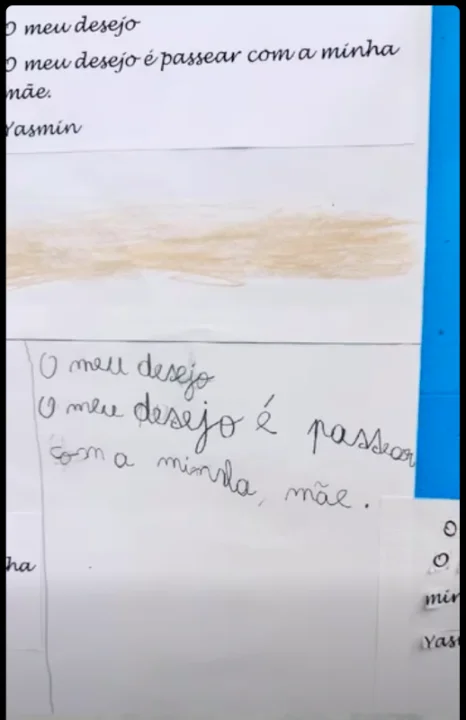 O meu desejo
O meu desejo é passear com a minha
mãe.
Yasmin
O meu desejo
O meu desejo é passear
com a minha, mãe.
ha
O
O